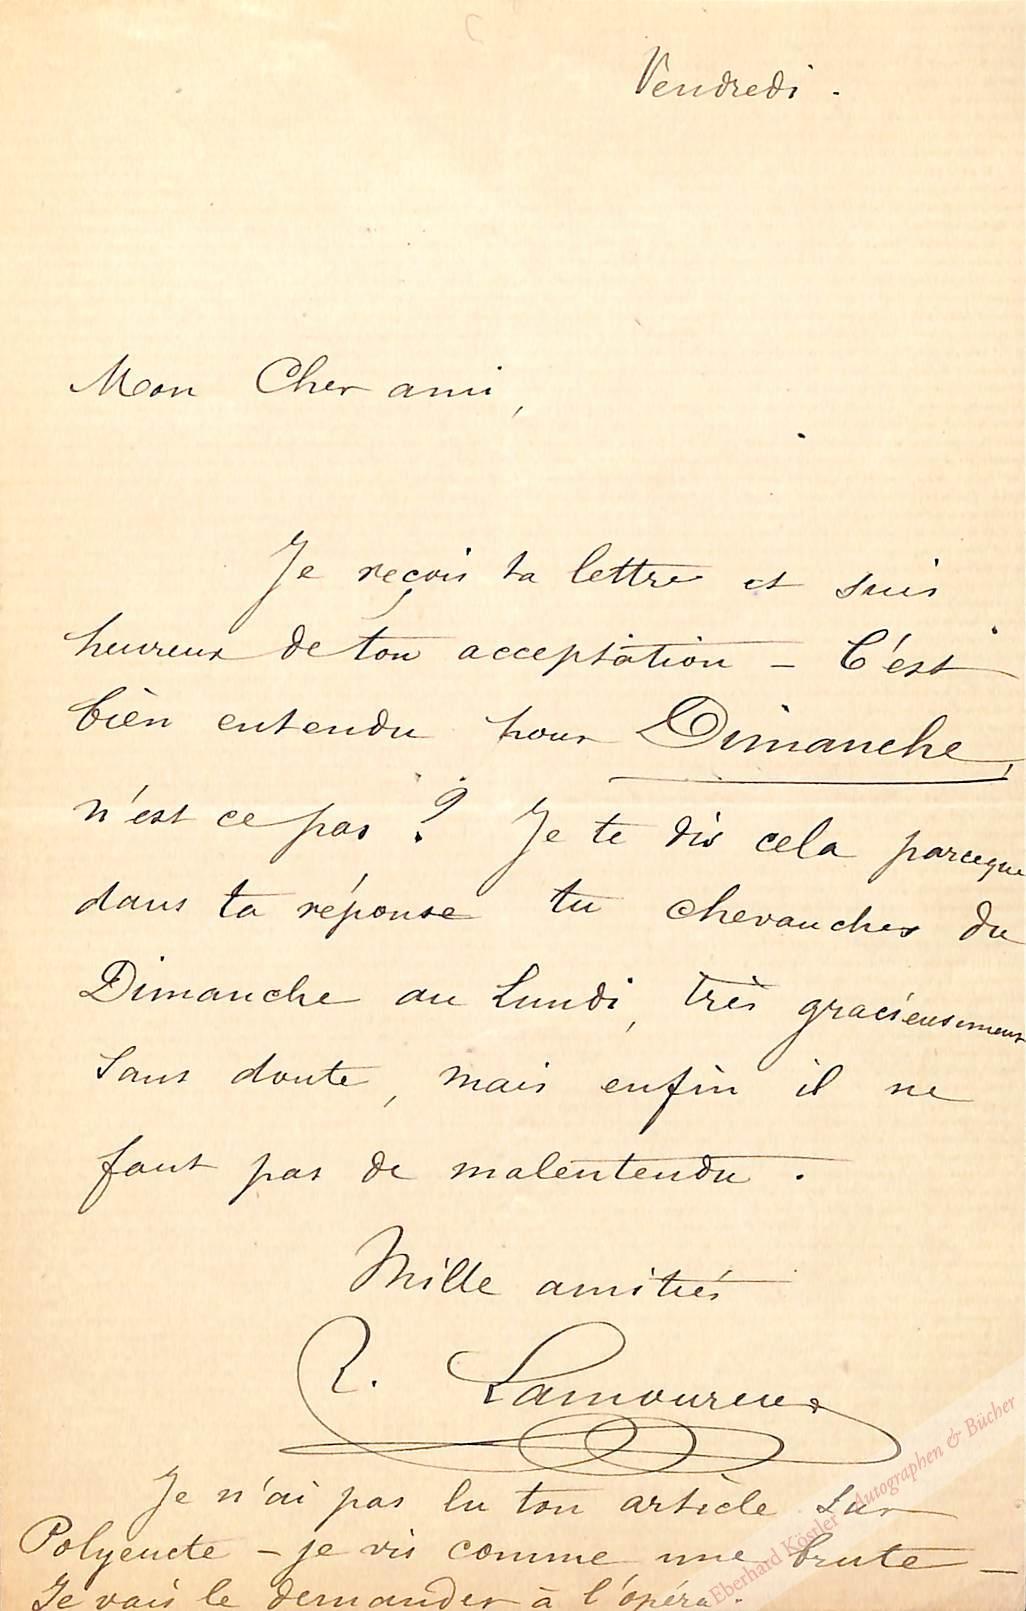 Vendredi .
Mon Cher ami,
Je reçois ta lettre et suis
heureux de ton acceptation – C'est
bien entendu pour Dimanche,
n'est ce pas ? Je te dis cela parceque
dans ta réponse tu chevauches du
Dimanche au Lundi, très gracieusement
sans doute, mais enfin il ne
faut pas de malentendu .
Mille amitiés
Lamoureux
Je n'ai pas lu ton article sur
Polyeucte – je vis comme une brute –
Je vais le demander à l'opéra .
Eberhard Köstler - Autographen & Bücher